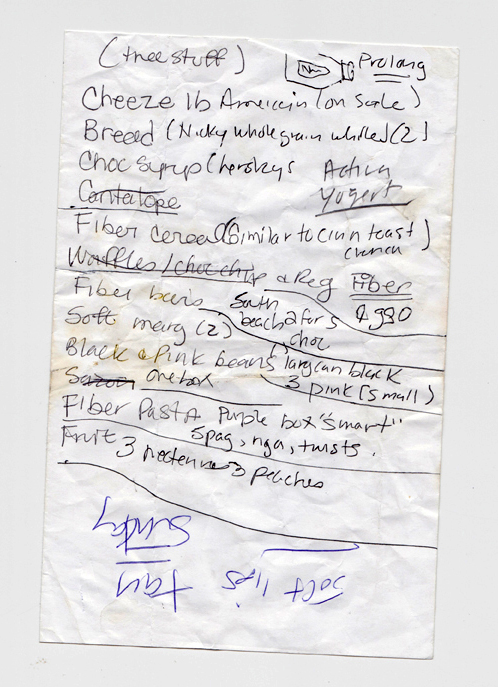 (tree stuff)
Nm Prolong
Cheeze 1b Americain (on Scale)
Breed (Nicky whole grain whiled (2)
Choc Syrup (herskys
Activa
Yogert
Cantalope
Fiber cereal (Similar to cinn toast crunch)
Waffles/choc chip & Reg
Fiber
Fiber bars
South beach 2 for 5
choc
Soft marg (2)
Black & Pink beans 1 larg can black
3 pink (small)
Sazon one box
Fiber Pasta Purple box "smart"
spag, nga, twists.
Fruit 3 3 peaches
Salt